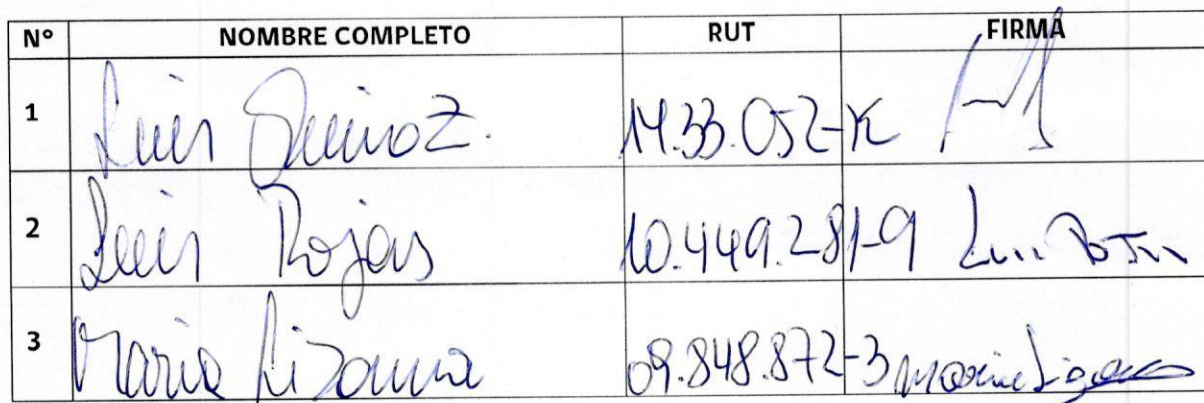 N° NOMBRE COMPLETO RUT FIRMA
1 Luis Quiroz. 14.33.052-K
2 Luis Rojas 10.449.281-9 Luis
3 Maria Lizama 09.848.872-3 Maria Lizama